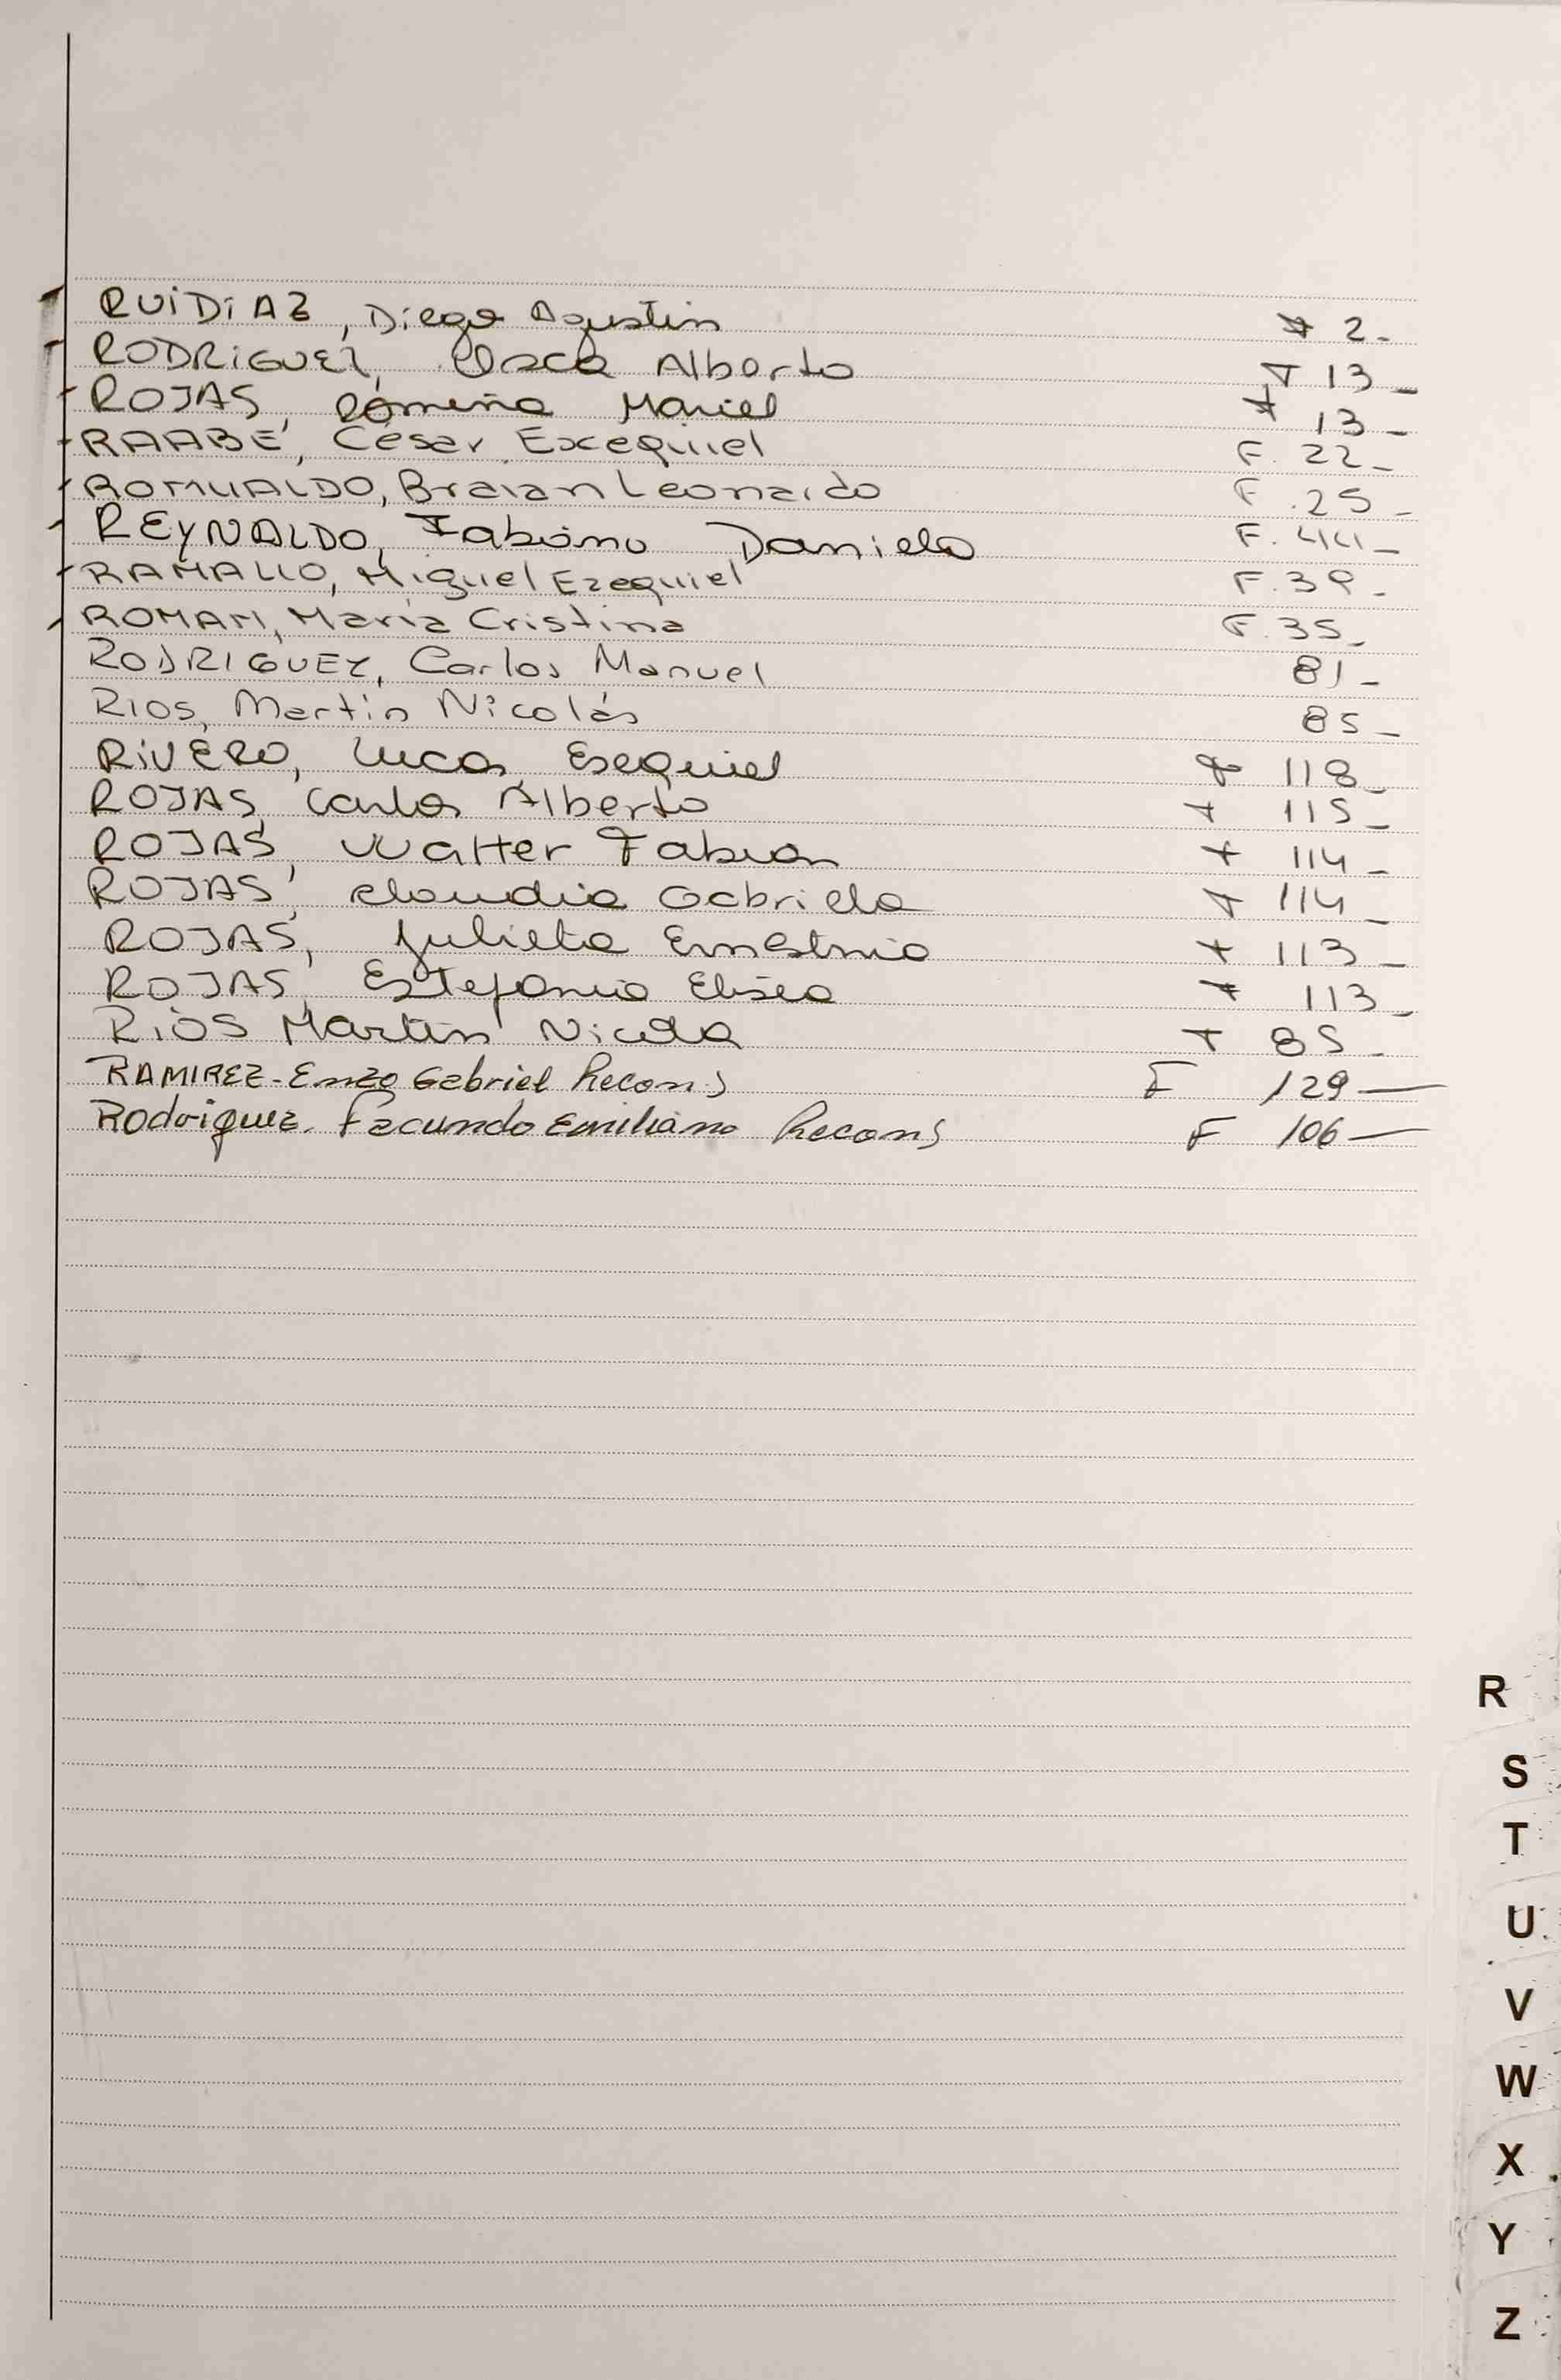 RUIDIAZ, Diego Agustin F 2-
RODRIGUEZ, Oscar Alberto F 13-
ROJAS, Romina Mariel F 13-
RAABE, César Exequiel F. 22-
ROMUALDO, Braian Leonardo F. 25-
REYNALDO, Fabiana Daniela F. 44-
RAMALLO, Miguel Ezequiel F. 39-
ROMAN, María Cristina F. 35-
RODRIGUEZ, Carlos Manuel 81-
RIOS, Martín Nicolás 85-
RIVERO, Lucas Esequiel F 118-
ROJAS, Carlos Alberto F 115-
ROJAS, Walter Fabian F 114-
ROJAS, Claudia Gabriela F 114-
ROJAS, Julieta Ernestina F 113-
ROJAS, Estefania Elisea F 113-
RIOS Martin Nicola F 85-
RAMIREZ-Enzo Gabriel Recon.) F 129-
Rodriguez. Facundo Emiliano Recon) F 106-
R
S
T
U
V
W
X
Y
Z